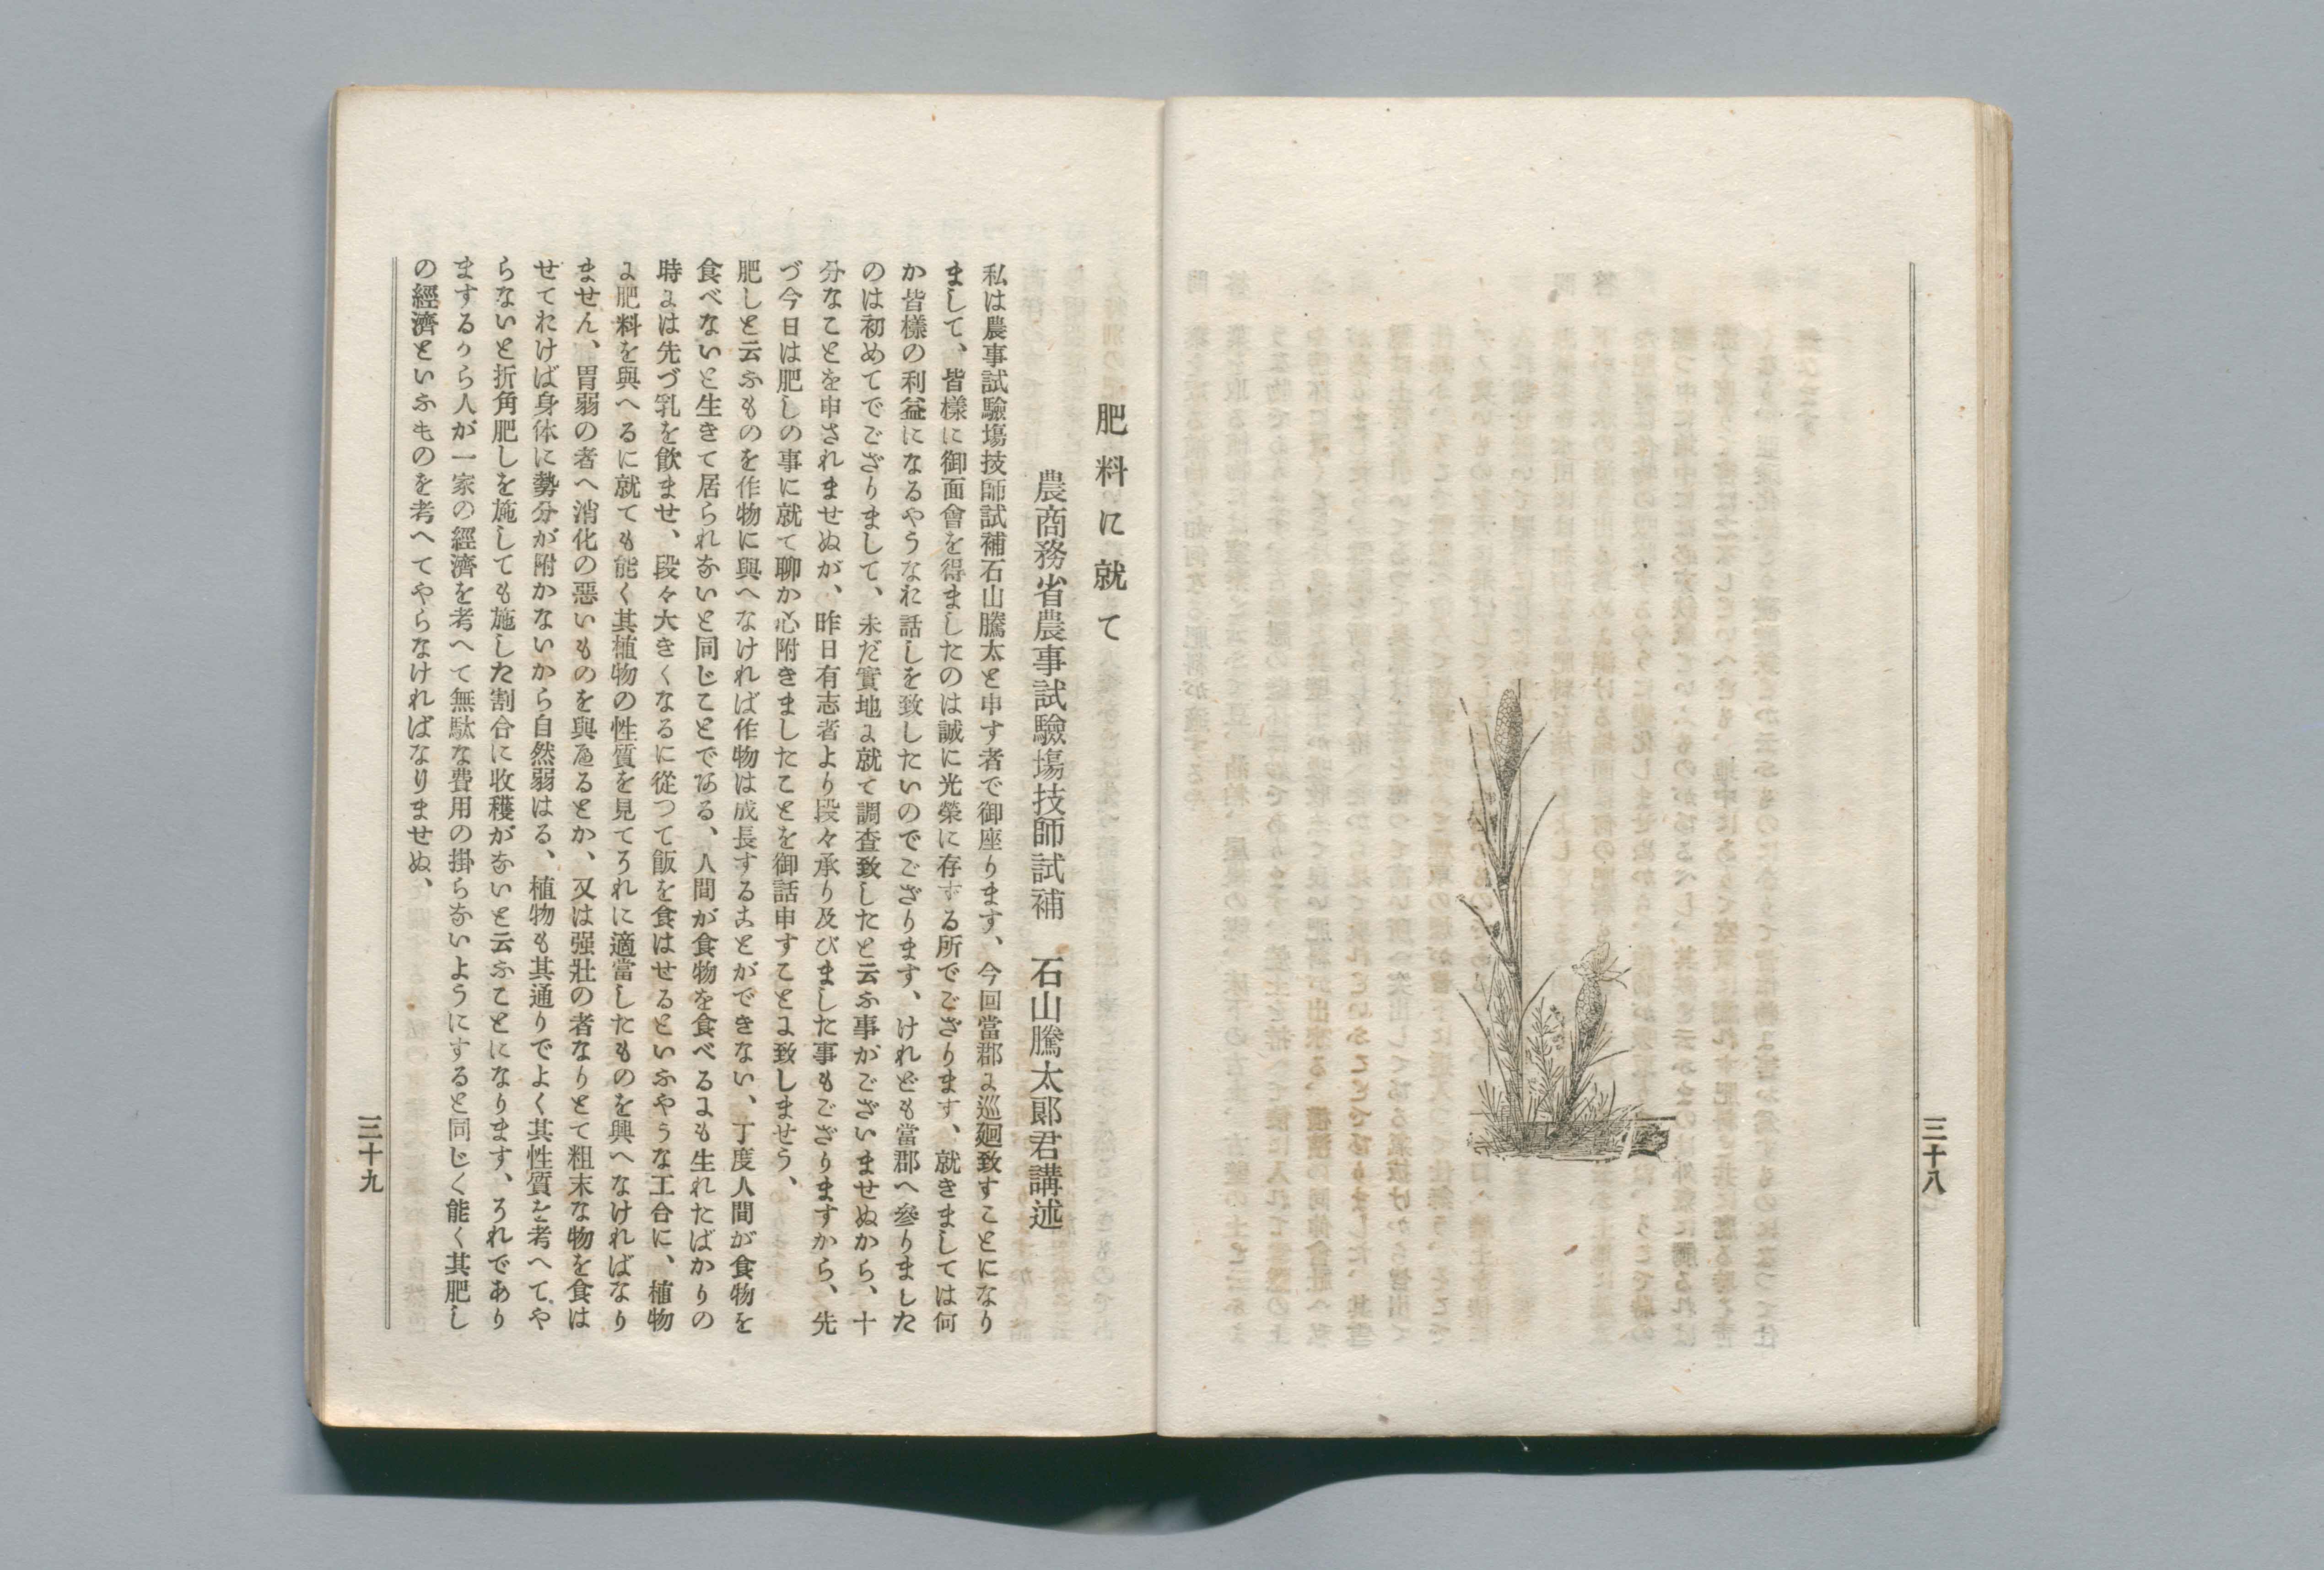 三十八
肥料に就て
農商務省農事試驗塲技師試補　石山騰太郞君講述
私は農事試驗塲技師試補石山騰太と申す者で御座ります、今回當郡に巡廻致すことになり
まして、皆樣に御面會を得ましたのは誠に光榮に存ずる所でござります、就きましては何
か皆樣の利益になるやうなお話しを致したいのでござります、けれども當郡へ參りました
のは初めてでござりまして、未だ實地に就て調査致したと云ふ事がございませぬから、十
分なことを申されませぬが、昨日有志者より段々承り及びました事もござりますから、先
づ今日は肥しの事に就て聊か心附きましたことを御話申すことに致しませう、
肥しと云ふものを作物に與へなければ作物は成長することができない、丁度人間が食物を
食べないと生きて居られないと同じことである、人間が食物を食べるにも生れたばかりの
時には先づ乳を飮ませ、段々大きくなるに從つて飯を食はせるといふやうな工合に、植物
に肥料を與へるに就ても能く其植物の性質を見てそれに適當したものを興へなければなり
ません、胃弱の者へ消化の惡いものを與ゑるとか、又は强壯の者なりとて粗末な物を食は
せておけば身体に勢分が附かないから自然弱はる、植物も其通りでよく其性質を考へてや
らないと折角肥しを施しても施した割合に收穫がないと云ふことになります、それであり
まするから人が一家の經濟を考へて無駄な費用の掛らないようにすると同じく能く其肥し
の經濟といふものを考へてやらなければなりませぬ、
三十九